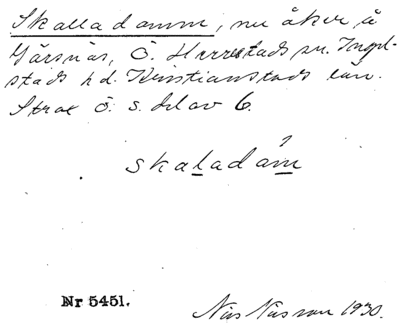 Skalladamm, nu åker å
Gärsnäs, Ö. Herrestads sn. Ingel-
stads hd. Kristianstads län.
Strax ö. s. del av 6.
skaladám
Nr 5451.
Nils Nilsson 1930.